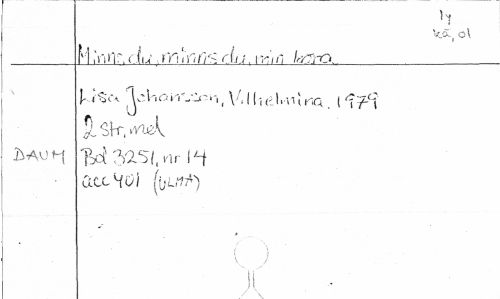 ly
kä, ol
Minns du, minns du, min kära
Lisa Johansson, Vilhelmina, 1979
2 str, mel
DAUM Bd 3251, nr 14
acc 401 (ULMA)